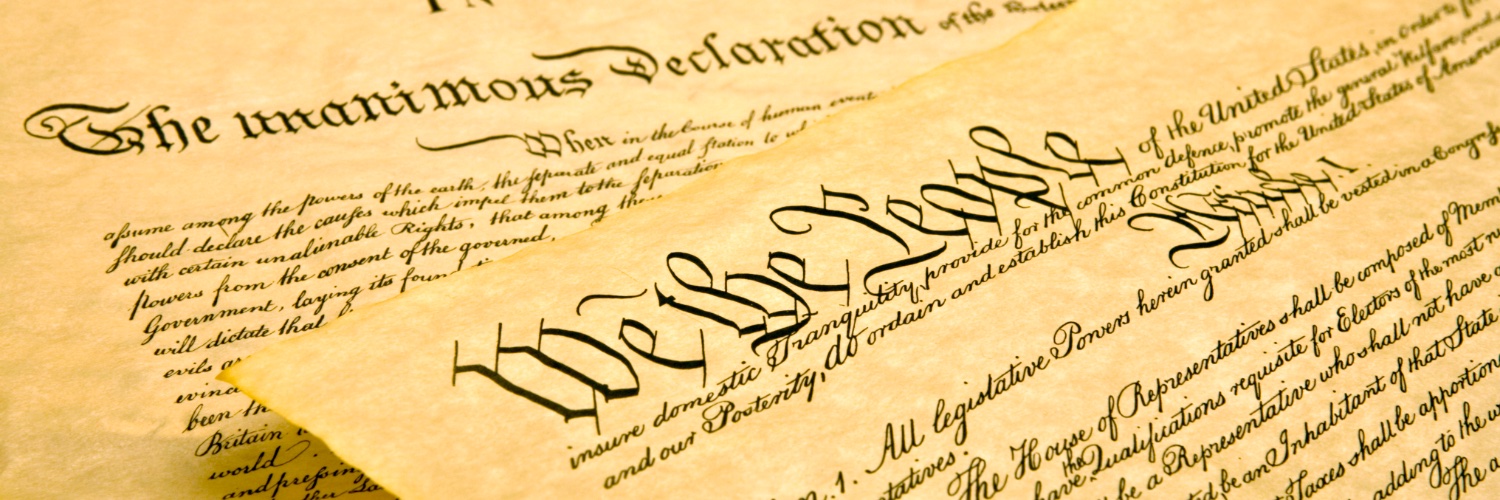 The unanimous Declaration of the
When in the Course of human events
assume among the powers of the earth, the separate and equal station to
should declare the causes which impel them to the separation
with certain unalienable Rights, that among
powers from the consent of the governed,
Government, laying its
will dictate that
evils
been
Britain
world
and
We the People of the United States, in Order to
insure domestic Tranquility, provide for the common defence, promote the general Welfare, and
and our Posterity, do ordain and establish this Constitution for the United States of America
1. All legislative Powers herein granted shall be vested in a
The House of Representatives shall be composed of
have the Qualifications requisite for Electors of the most
be a Representative who shall not have
be an Inhabitant of that State
Taxes shall be
adding to the
The